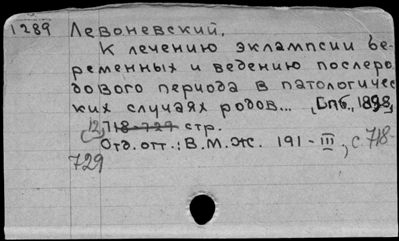 1289 Левоневский,
К лечению эклампсии бе-
ременных и ведению послеро-
дового периода в патологичес
ких случаях родов... [Спб., 1898,
[12] 718-729 стр.
Отд. отт.: В.М.Ж. 191-III, с. 718-
729